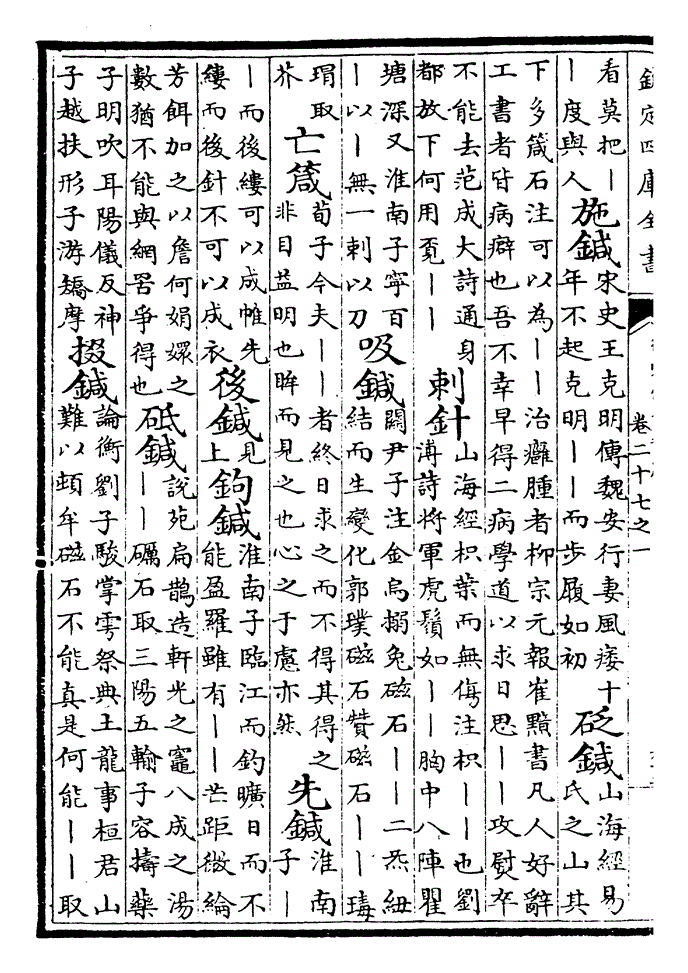 欽定四庫全書
卷二十七之一
看莫把｜
｜度與人
施鍼
宋史王克明傳魏安行妻風痿十
年不起克明｜｜而步履如初
砭鍼
山海經易
氏之山其
下多箴石注可以為｜｜治癰腫者柳宗元報崔黯書凡人好辭
工書者皆病癖也吾不幸早得二病學道以求日思｜｜攻熨卒
不能去范成大詩通身
都放下何用覔｜｜
刺針
山海經枳葉而無傷注枳｜｜也劉
溥詩將軍虎鬚如｜｜胸中八陣瞿
塘深又淮南子寧百
｜以｜無一刺以刀
吸鍼
關尹子注金烏搦兔磁石｜｜二炁紐
結而生變化郭璞磁石贊磁石｜｜瑇
瑁取
芥
亡箴
荀子今夫｜｜者終日求之而不得其得之
非目益明也眸而見之也心之于慮亦然
先鍼
淮南
子｜
｜而後縷可以成帷先
縷而後針不可以成衣
後鍼
見
上
鉤鍼
淮南子臨江而釣曠日而不
能盈羅雖有｜｜芒距微綸
芳餌加之以詹何娟嬛之
數猶不能與網罟爭得也
砥鍼
說苑扁鵲造軒光之竈八成之湯
｜｜礪石取三陽五輸子容擣藥
子明吹耳陽儀反神
子越扶形子游矯摩
掇鍼
論衡劉子駿掌雩祭典土龍事桓君山
難以頓牟磁石不能真是何能｜｜取